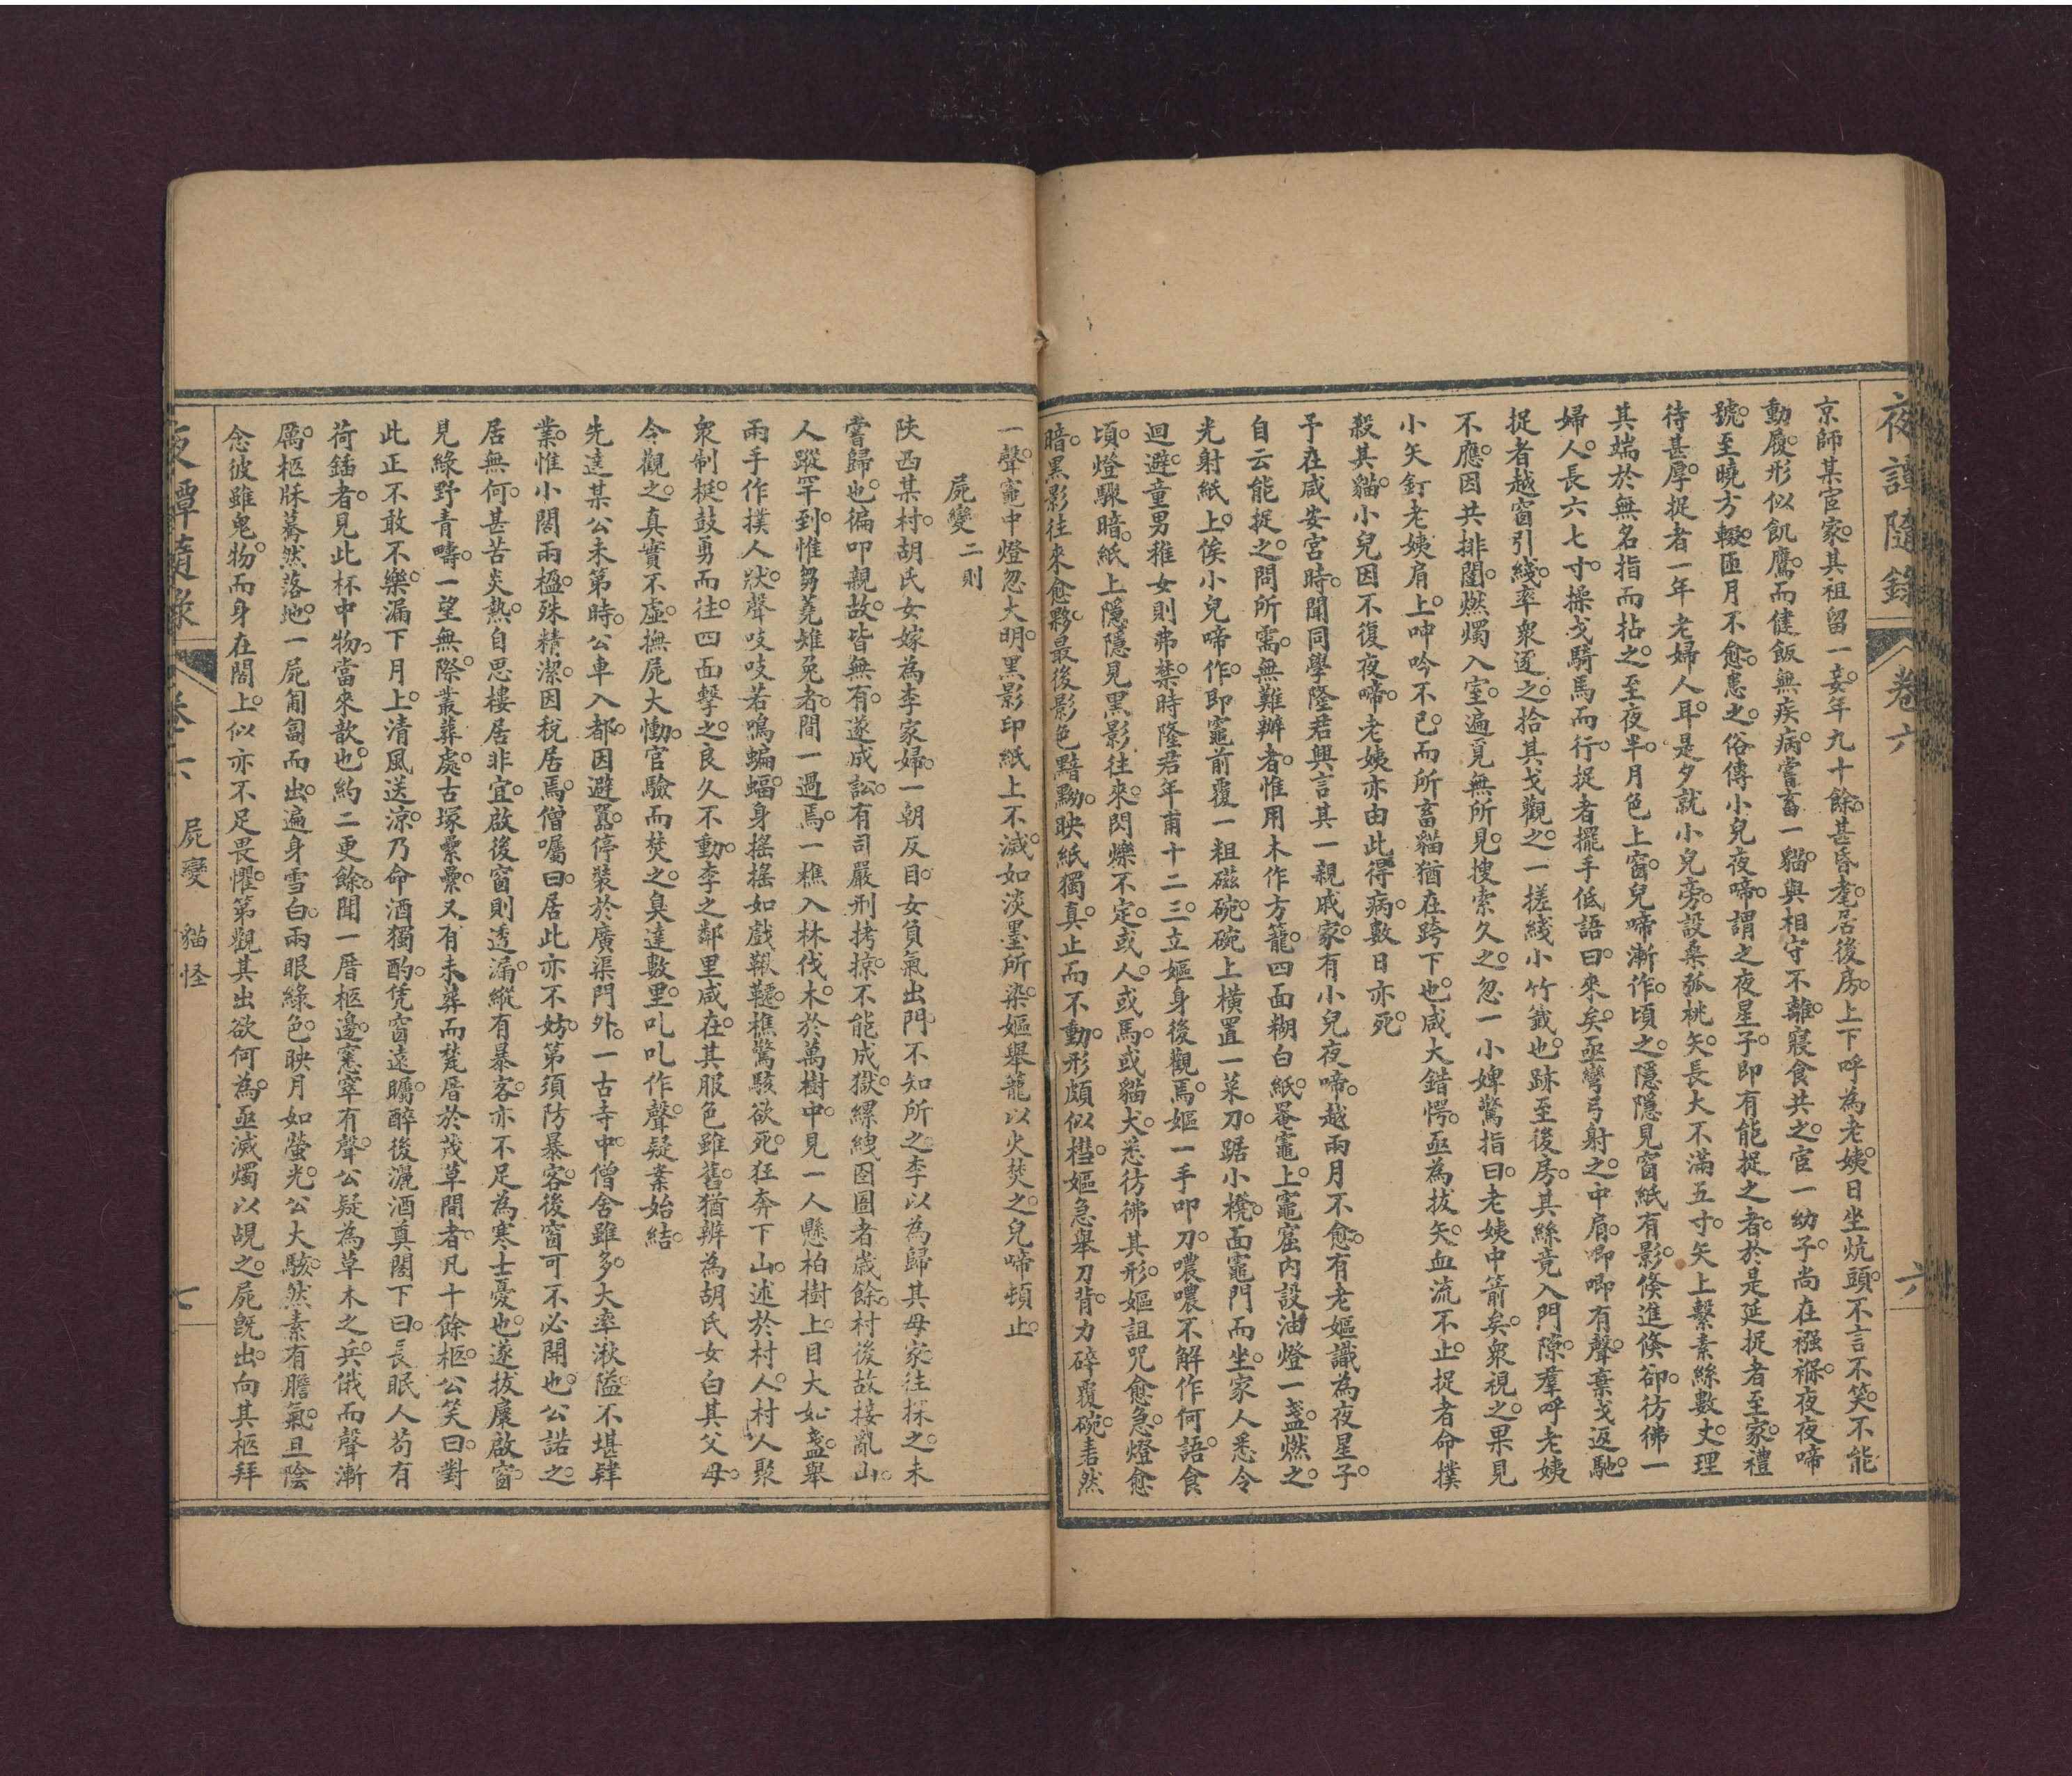 夜譚隨錄 卷六 六
京師某宦家。其祖留一妾。年九十餘。甚昏耄。居後房。上下呼為老姨。日坐炕頭。不言不笑。不能
動履。形似飢鷹。而健飯無疾病。嘗畜一貓。與相守不離。寢食共之。宦一幼子。尚在襁褓。夜夜啼
號。至曉方輟。匝月不愈。患之。俗傳小兒夜啼。謂之夜星子。即有能捉之者。於是延捉者至家。禮
待甚厚。捉者一年老婦人耳。是夕就小兒旁。設桑弧桃矢。長大不滿五寸。矢上繫素絲數丈。理
其端於無名指而拈之。至夜半。月色上窗。兒啼漸作。頃之。隱隱見窗紙有影。倏進倏卻。彷彿一
婦人。長六七寸。操戈騎馬而行。捉者擺手低語曰。來矣。亟彎弓射之。中肩。唧唧有聲。棄戈返馳。
捉者越窗引綫。率衆逐之。拾其戈觀之。一搓綫小竹籤也。跡至後房。其絲竟入門隙。羣呼老姨
不應。因共排闥。燃燭入室。遍覓無所見。搜索久之。忽一小婢驚指曰。老姨中箭矣。衆視之。果見
小矢釘老姨肩上。呻吟不已。而所畜貓猶在跨下也。咸大錯愕。亟為拔矢。血流不止。捉者命撲
殺其貓。小兒因不復夜啼。老姨亦由此得病。數日亦死。
予在咸安宮時。聞同學隆君興言其一親戚家。有小兒夜啼。越兩月不愈。有老嫗識為夜星子。
自云能捉之。問所需。無難辦者。惟用木作方籠。四面糊白紙。罨竈上。竈窟內設油燈一盞。燃之。
光射紙上。俟小兒啼作。即竈前覆一粗磁碗。碗上橫置一菜刀。踞小櫈。面竈門而坐。家人悉令
迴避。童男稚女則弗禁。時隆君年甫十二三。立嫗身後觀焉。嫗一手叩刀。噥噥不解作何語。食
頃。燈驟暗。紙上隱隱見黑影往來。閃爍不定。或人。或馬。或貓犬。悉彷彿其形。嫗詛咒愈急。燈愈
暗。黑影往來愈夥。最後影色黯黝。映紙獨真。止而不動。形頗似櫼。嫗急舉刀背。力碎覆碗。砉然
一聲。竈中燈忽大明。黑影印紙上不滅。如淡墨所染。嫗舉籠以火焚之。兒啼頓止。
屍變二則
陝西某村。胡氏女嫁為李家婦。一朝反目。女負氣出門。不知所之。李以為歸其母家。往探之。未
嘗歸也。徧叩親故。皆無有。遂成訟。有司嚴刑拷掠。不能成獄。縲絏囹圄者歲餘。村後故接亂山。
人蹤罕到。惟芻蕘雉兔者。間一過焉。一樵入林伐木。於萬樹中。見一人懸柏樹上。目大如盞。舉
兩手作撲人狀。聲吱吱若鳴蝙蝠。身搖搖如戲鞦韆。樵驚駭欲死。狂奔下山。述於村人。村人聚
衆制梃。鼓勇而往。四面擊之。良久不動。李之鄰里咸在。其服色雖舊。猶辨為胡氏女。白其父母。
令觀之。真實不虛。撫屍大慟。官驗而焚之。臭達數里。吼吼作聲。疑案始結。
先達某公未第時。公車入都。因避囂。停裝於廣渠門外。一古寺中。僧舍雖多。大率湫隘。不堪肄
業。惟小閣兩楹。殊精潔。因稅居焉。僧囑曰。居此亦不妨。第須防暴客。後窗可不必開也。公諾之。
居無何。甚苦炎熱。自思樓居非宜。啟後窗則透漏。縱有暴客。亦不足為寒士憂也。遂拔扊啟窗。
見綠野青疇。一望無際。叢葬處。古塚纍纍。又有未葬而甃厝於茂草間者。凡十餘柩。公笑曰。對
此正不敢不樂。漏下月上。清風送涼。乃命酒獨酌。凭窗遠矚。醉後灑酒奠閣下曰。長眠人苟有
荷鍤者。見此杯中物。當來歆也。約二更餘。聞一厝柩邊。窸窣有聲。公疑為草木之兵。俄而聲漸
厲。柩牀驀然落地。一屍匍匐而出。遍身雪白。兩眼綠色。映月如螢光。公大駭。然素有膽氣。且陰
念彼雖鬼物。而身在閣上。似亦不足畏懼。第觀其出欲何為。亟滅燭以覘之。屍既出。向其柩拜
夜譚隨錄 卷六 屍變 貓怪 七